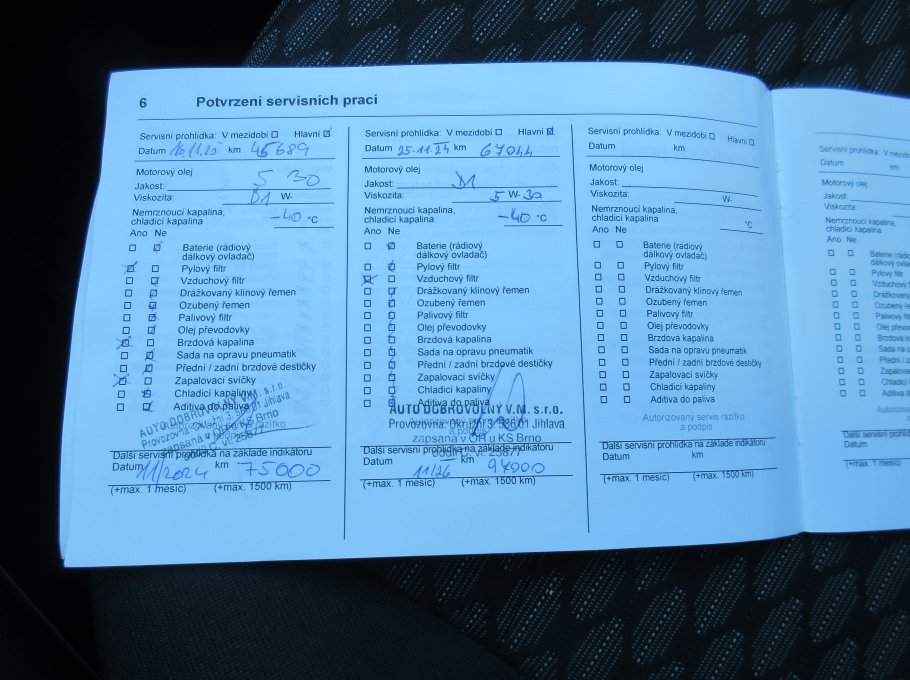 6 Potvrzení servisních prací
Servisní prohlídka: V mezidobí ☐ Hlavní ☒
Datum km 45689
Motorový olej
Jakost: 5 30
Viskozita: D1 W-
Nemrznoucí kapalina,
chladicí kapalina -40 °C
Ano Ne
Baterie (rádiový
dálkový ovladač)
Pylový filtr
Vzduchový filtr
Drážkovaný klínový řemen
Ozubený řemen
Palivový filtr
Olej převodovky
Brzdová kapalina
Sada na opravu pneumatik
Přední / zadní brzdové destičky
Zapalovací svíčky
Chladicí kapaliny
Aditiva do paliva
AUTO DOBROVOLNÝ V.M. s.r.o.
Provozovna Okružní 3, 586 01 Jihlava
zapsaná v OR u KS Brno
Další servisní prohlídka na základě indikátoru
Datum 11/2024 km 75000
(+max. 1 měsíc) (+max. 1500 km)
Servisní prohlídka: V mezidobí ☐ Hlavní ☒
Datum 25.11.24 km 67044
Motorový olej
Jakost: D1
Viskozita: 5 W-30
Nemrznoucí kapalina,
chladicí kapalina -40 °C
Ano Ne
Baterie (rádiový
dálkový ovladač)
Pylový filtr
Vzduchový filtr
Drážkovaný klínový řemen
Ozubený řemen
Palivový filtr
Olej převodovky
Brzdová kapalina
Sada na opravu pneumatik
Přední / zadní brzdové destičky
Zapalovací svíčky
Chladicí kapaliny
Aditiva do paliva
AUTO DOBROVOLNÝ V.M. s.r.o.
Provozovna Okružní 3, 586 01 Jihlava
a podpis
zapsaná v OR u KS Brno
oddíl C, vl. 25877
Další servisní prohlídka na základě indikátoru
Datum 11/26 km
(+max. 1 měsíc) (+max. 1500 km)
Servisní prohlídka: V mezidobí ☐ Hlavní ☐
Datum km
Motorový olej
Jakost:
Viskozita: W-
Nemrznoucí kapalina,
chladicí kapalina °C
Ano Ne
Baterie (rádiový
dálkový ovladač)
Pylový filtr
Vzduchový filtr
Drážkovaný klínový řemen
Ozubený řemen
Palivový filtr
Olej převodovky
Brzdová kapalina
Sada na opravu pneumatik
Přední / zadní brzdové destičky
Zapalovací svíčky
Chladicí kapaliny
Aditiva do paliva
Autorizovaný servis razítko
a podpis
Další servisní prohlídka na základě indikátoru
Datum km
(+max. 1 měsíc) (+max. 1500 km)
Servisní prohlídka: V
Datum km
Motorový olej
Jakost:
Viskozita:
Nemrznoucí kapalina,
chladicí kapalina
Ano Ne
Baterie
dálkový
Pylový filtr
Vzduchový
Ozubený
Palivový
Olej
Brzdová
Sada na
Přední /
Chladicí
Aditiva
Další servisní prohlídka
Datum
(+max. 1 měsíc)